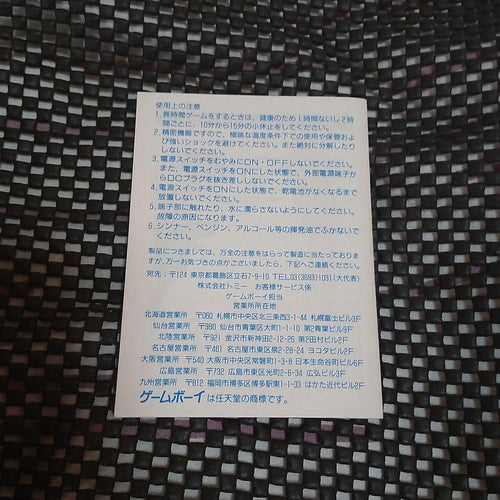 使用上の注意
1.長時間ゲームをするときは、健康のため1時間ないし2時
間ごとに、10分から15分の小休止をしてください。
2.精密機器ですので、極端な温度条件下での使用や保管およ
び強いショックを避けてください。また絶対に分解したり
しないでください。
3.電源スイッチをむやみにON・OFFしないでください。
また、電源スイッチをONにした状態で、外部電源端子か
らDCプラグを抜き差ししないでください。
4.電源スイッチをONにした状態で、乾電池がなくなるまで
放置しないでください。
5.端子部に触れたり、水に濡らさないようにしてください。
故障の原因になります。
6.シンナー、ベンジン、アルコール等の揮発油でふかないで
ください。
製品につきましては、万全の注意をはらって製造に当たっており
ますが、万一お気づきの点がございましたら、下記へご連絡ください。
宛先:〒124 東京都葛飾区立石7-9-10 TEL03(3693)1031(大代表)
株式会社トミー お客様サービス係
ゲームボーイ担当
営業所所在地
北海道営業所 〒060 札幌市中央区北三条西3-1-44 札幌富士ビル3F
仙台営業所 〒980 仙台市青葉区大町1-1-10 第2青葉ビル9F
北陸営業所 〒921 金沢市新神田2-12-26 第2田村ビル2F
名古屋営業所 〒461 名古屋市東区泉2-28-24 ヨコタビル2F
大阪営業所 〒540 大阪市中央区常磐町1-3-8 日本生命谷町ビル6F
広島営業所 〒732 広島市東区光町2-6-34 広弘ビル3F
九州営業所 〒812 福岡市博多区博多駅東1-1-33 はかた近代ビル2F
ゲームボーイは任天堂の商標です。